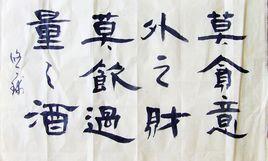 莫貪意
外之財
莫飲過
量之酒